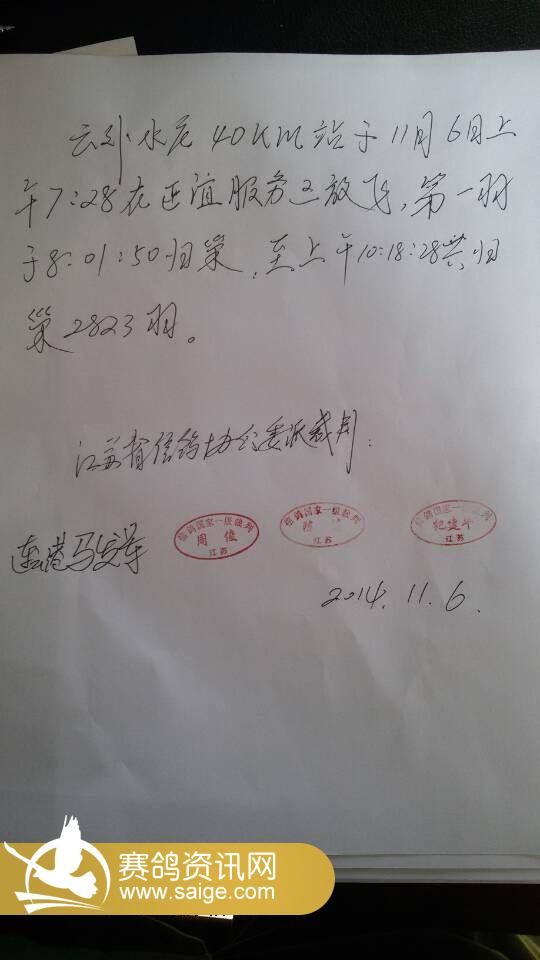 云外水尼40KM站于11月6日上
午7:28在正谊服务区放飞,第一羽
于8:01:50归巢,至上午10:18:28共归
巢2823羽。
江苏省信鸽协会委派裁判:
信鸽国家一级裁判
周俊
江苏
信鸽国家一级裁判
陈
江苏
信鸽国家一级裁判
江苏
2014.11.6.
赛鸽资讯网
www.saige.com